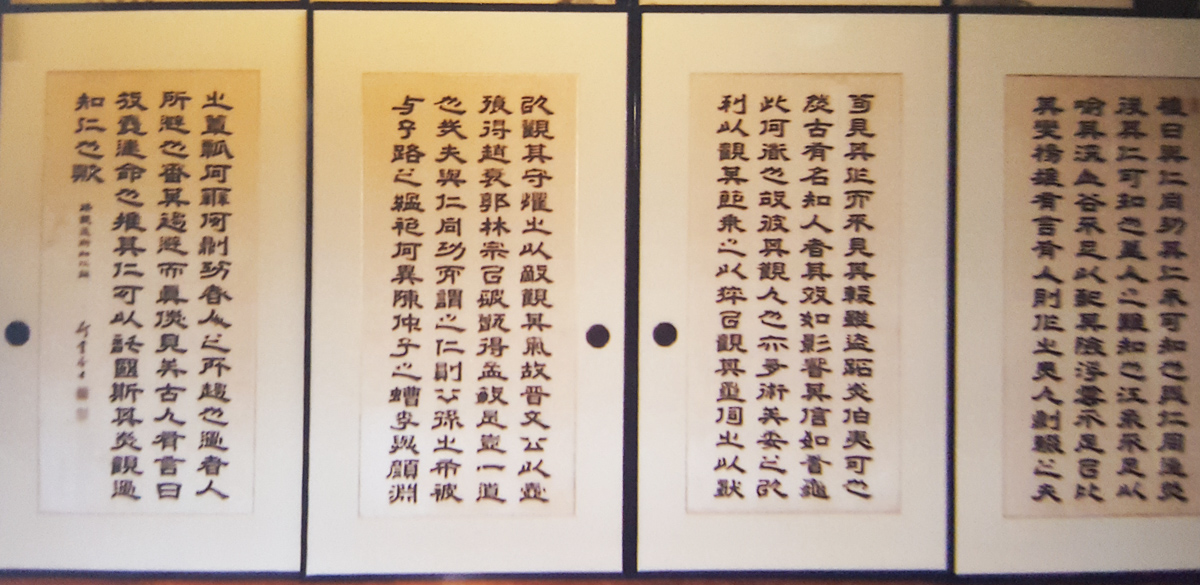 禮曰與仁同功其仁未可知也與仁同過然
後其仁可知也蓋人之難知也江海不足以
喻其深山谷不足以配其險浮雲不足以比
其變揚雄有言有人則作之無人則輟之夫
苟見其作而不見其輟雖盜跖爲伯夷可也
然古有名知人者其效如影響其信如蓍龜
此何道也故彼其觀人也亦多術矣委之以
利以觀其節乘之以猝以觀其量伺之以獨
以觀其守懼之以敵觀其氣故晉文公以壺
飱得趙衰郭林宗以破甑得孟敏是豈一道
也哉夫與仁同功而謂之仁則公孫之布被
与子路之縕袍何異陳仲子之螬李與顏淵
之簞瓢何辨何則功者人之所趨也過者人
所避也審其趨避而眞僞見矣古人有言曰
放麑違命也推其仁可以託國斯其爲觀過
知仁也歟